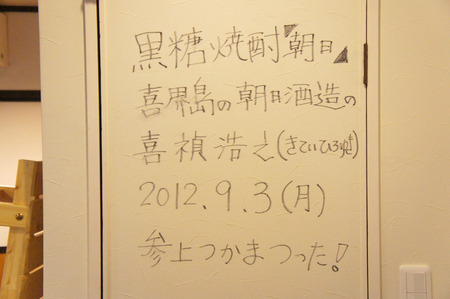 黒糖焼酎『朝日』
喜界島の朝日酒造の
喜禎浩之(きていひろゆき)
2012.9.3(月)
参上つかまつった!